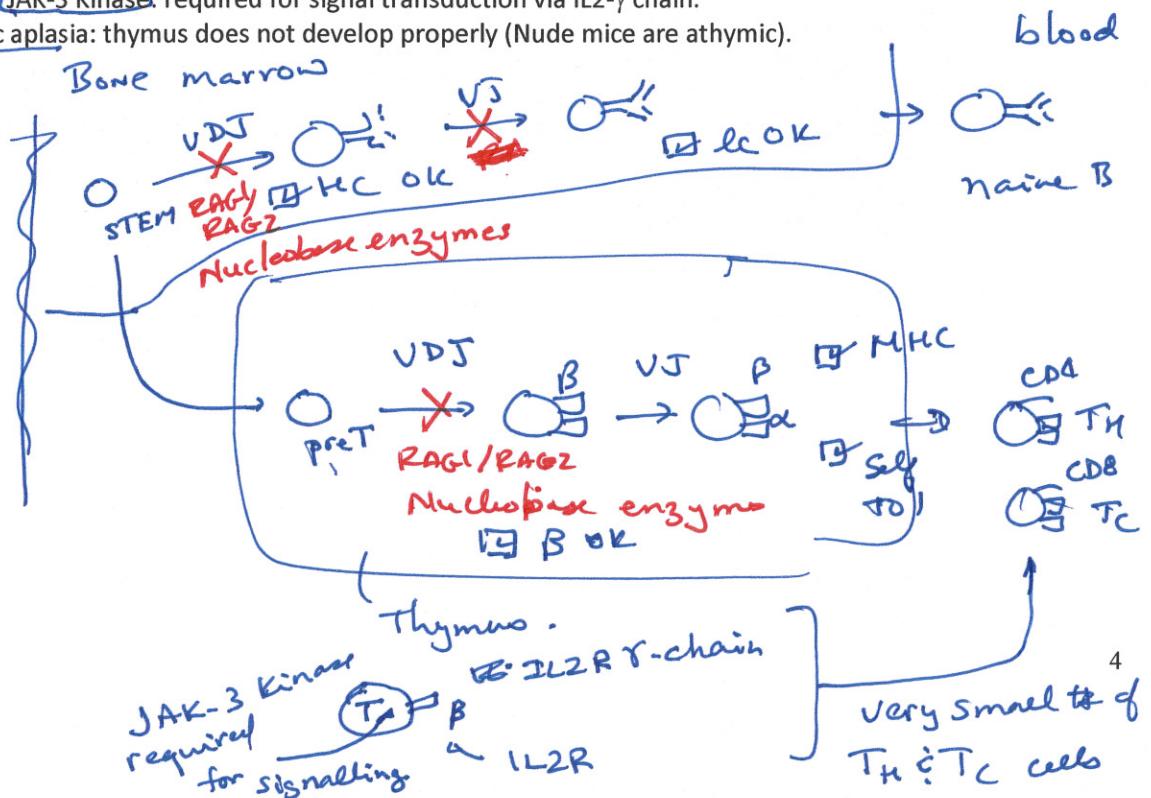 JAK-3 Kinase: required for signal transduction via IL2-γ chain.
c aplasia: thymus does not develop properly (Nude mice are athymic).
blood
Bone marrow
VDJ
VJ
STEM
RAG1/
RAG2
☑ HC OK
☑ LC OK
naive B
Nucleobase enzymes
VDJ
β
VJ
β
α
☑ MHC
CD4
TH
preT
RAG1/RAG2
☑ Self
tol
CD8
TC
Nucleobase enzymes
☑ β OK
Thymus.
IL2R γ-chain
JAK-3 Kinase
required
for signalling
T
β
α
IL2R
very small # of
TH & TC cells
4